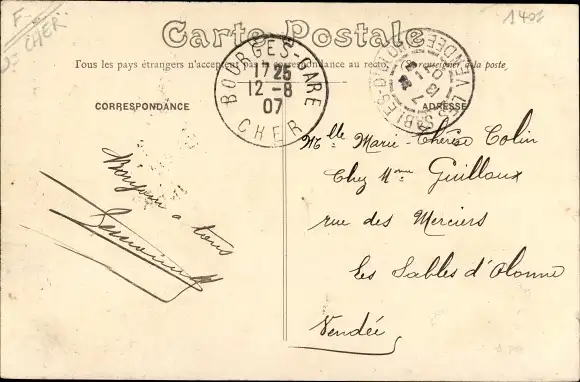 F
CHER
140f
Carte Postale
Tous les pays étrangers n'acceptent pas la correspondance au recto. (Se renseigner à la poste)
BOURGES-GARE
17 25
12 - 8
07
CHER
LES SABLES-D'OLONNE
VENDEE
13
07
CORRESPONDANCE
ADRESSE
Bonjour a tous
Mlle Marie-Thérèse Colin
Chez Mme Guilloux
rue des Merciers
Les Sables d'Olonne
Vendée